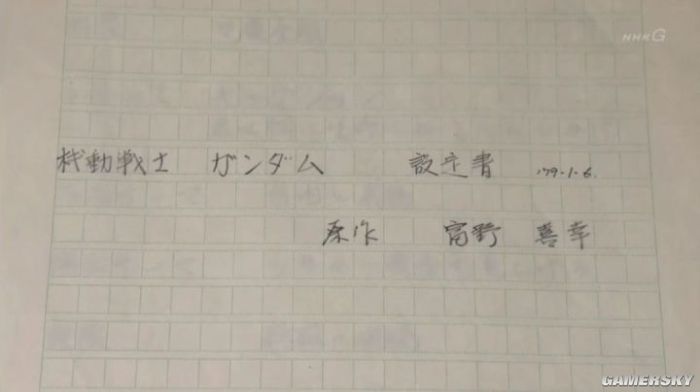 NHK G
機動戦士 ガンダム 設定書 '79.1.6.
原作 富野 喜幸
GAMERSKY